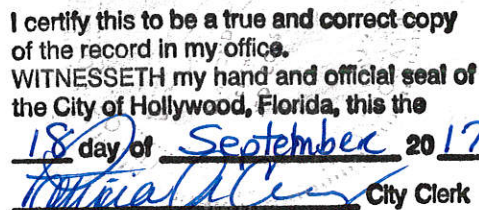 I certify this to be a true and correct copy
of the record in my office.
WITNESSETH my hand and official seal of
the City of Hollywood, Florida, this the
18 day of September 2017
City Clerk